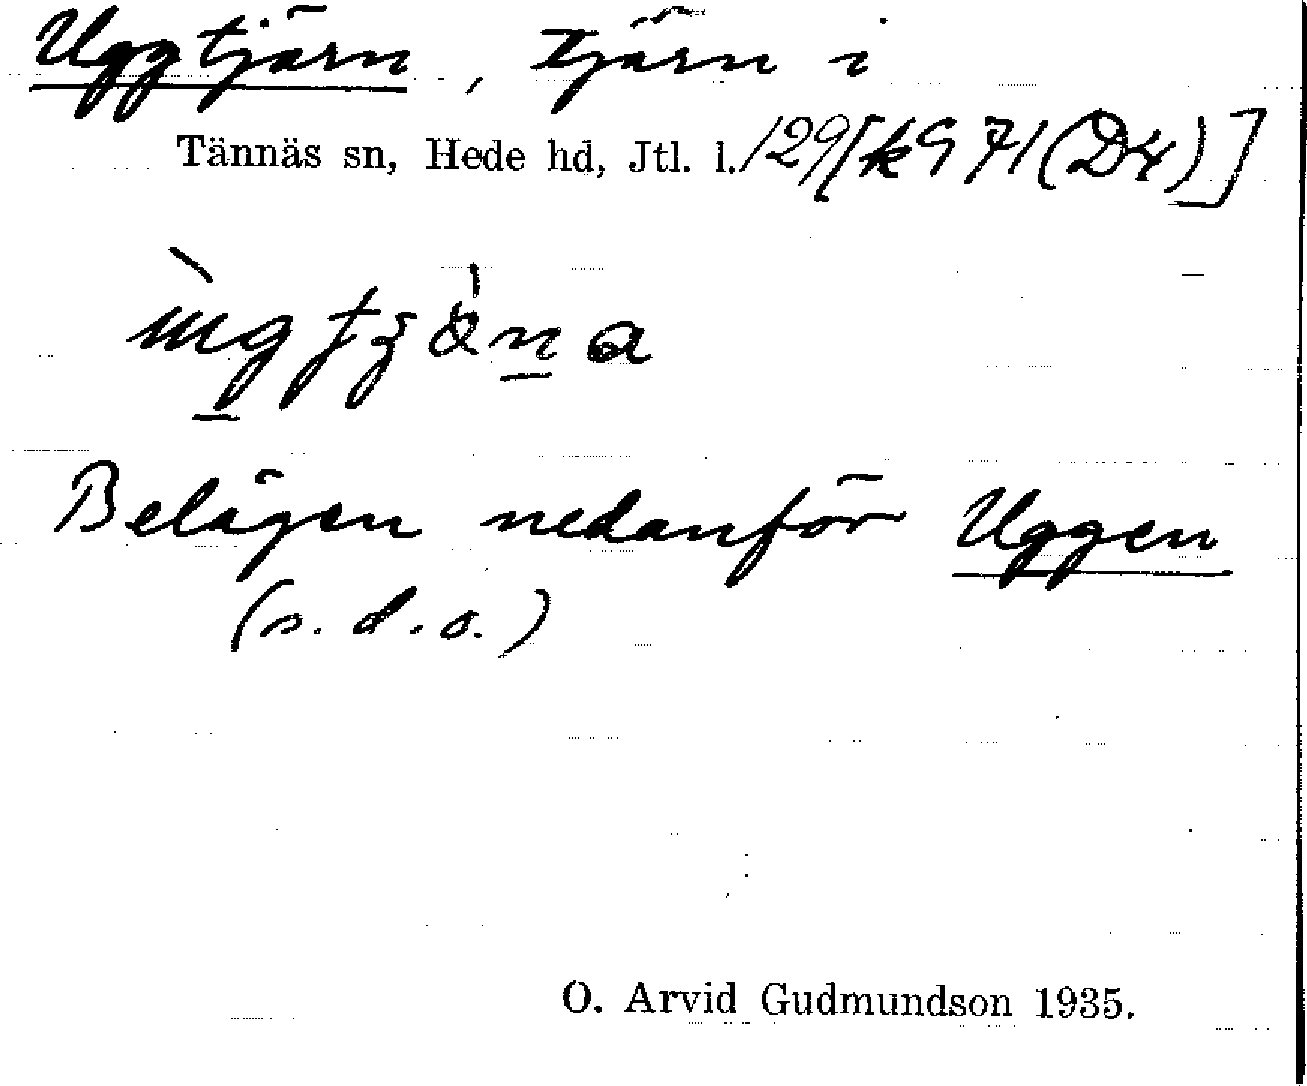 Uggtjärn, tjärn i
Tännäs sn, Hede hd, Jtl. l. 129 [k971 (D4)]
Belägen nedanför Uggen
(s. d. o.)
O. Arvid Gudmundson 1935.